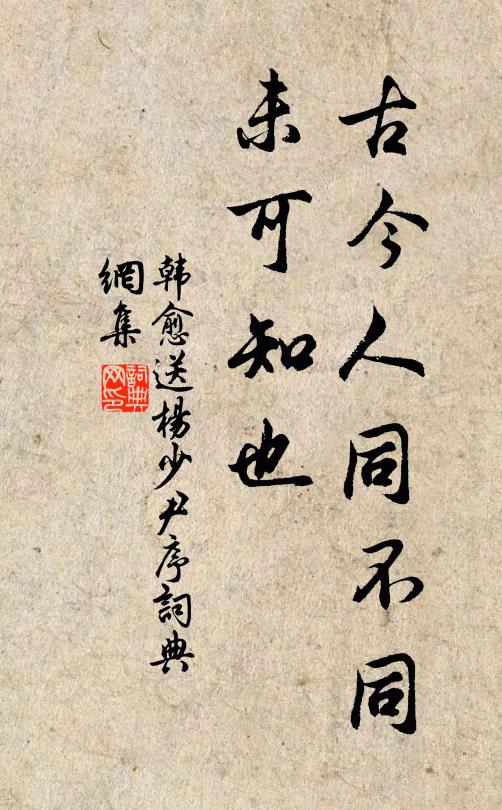 古今人同不同
未可知也
韩愈送楊少尹序詞典
網集
詞典
网印